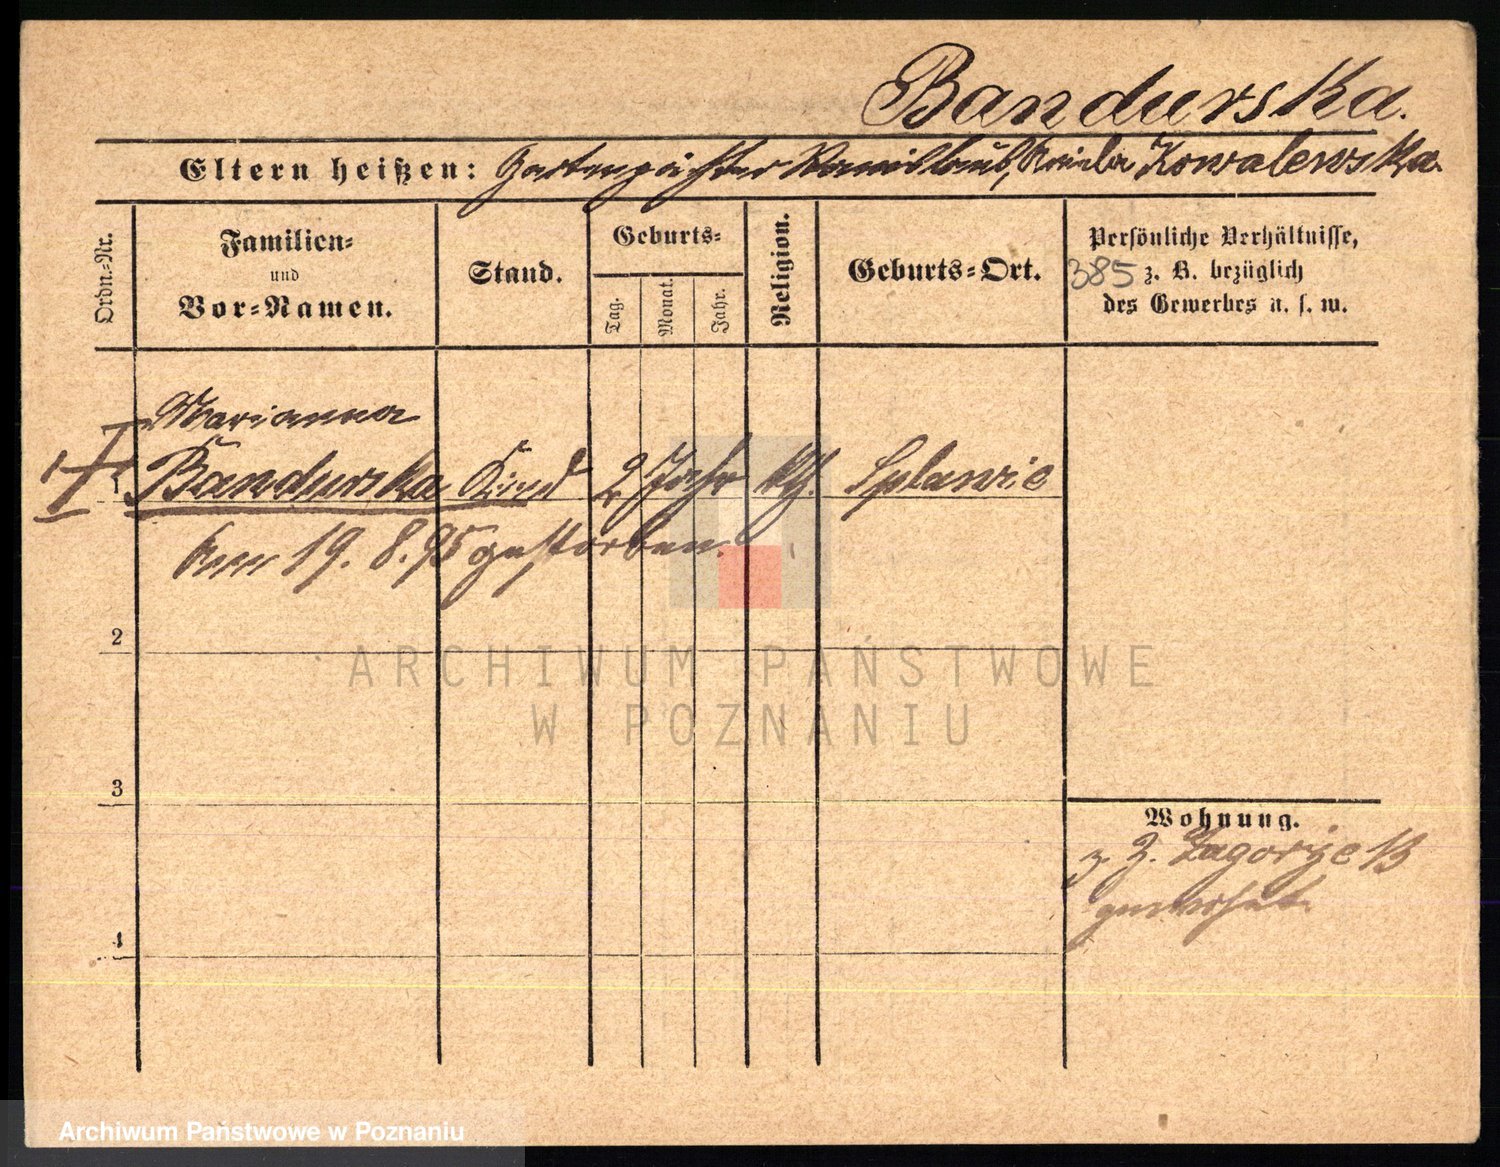 Bandurska.
Eltern heißen: Gartenpächter Stanislaus, Kowalewska
Ordn.=Nr.
Familien=
und
Vor=Namen.
Stand.
Geburts=
Tag.
Monat.
Jahr.
Religion.
Geburts=Ort.
Persönliche Verhältnisse,
385 z. B. bezüglich
des Gewerbes u. s. w.
Marianna
1 Bandurska Kind 2 Jahr kth. Splawie
Am 19. 8. 95 gestorben.
2
3
4
Wohnung.
z. Z. Zagorze 13
gewohnt.
ARCHIWUM PAŃSTWOWE
W POZNANIU
Archiwum Państwowe w Poznaniu